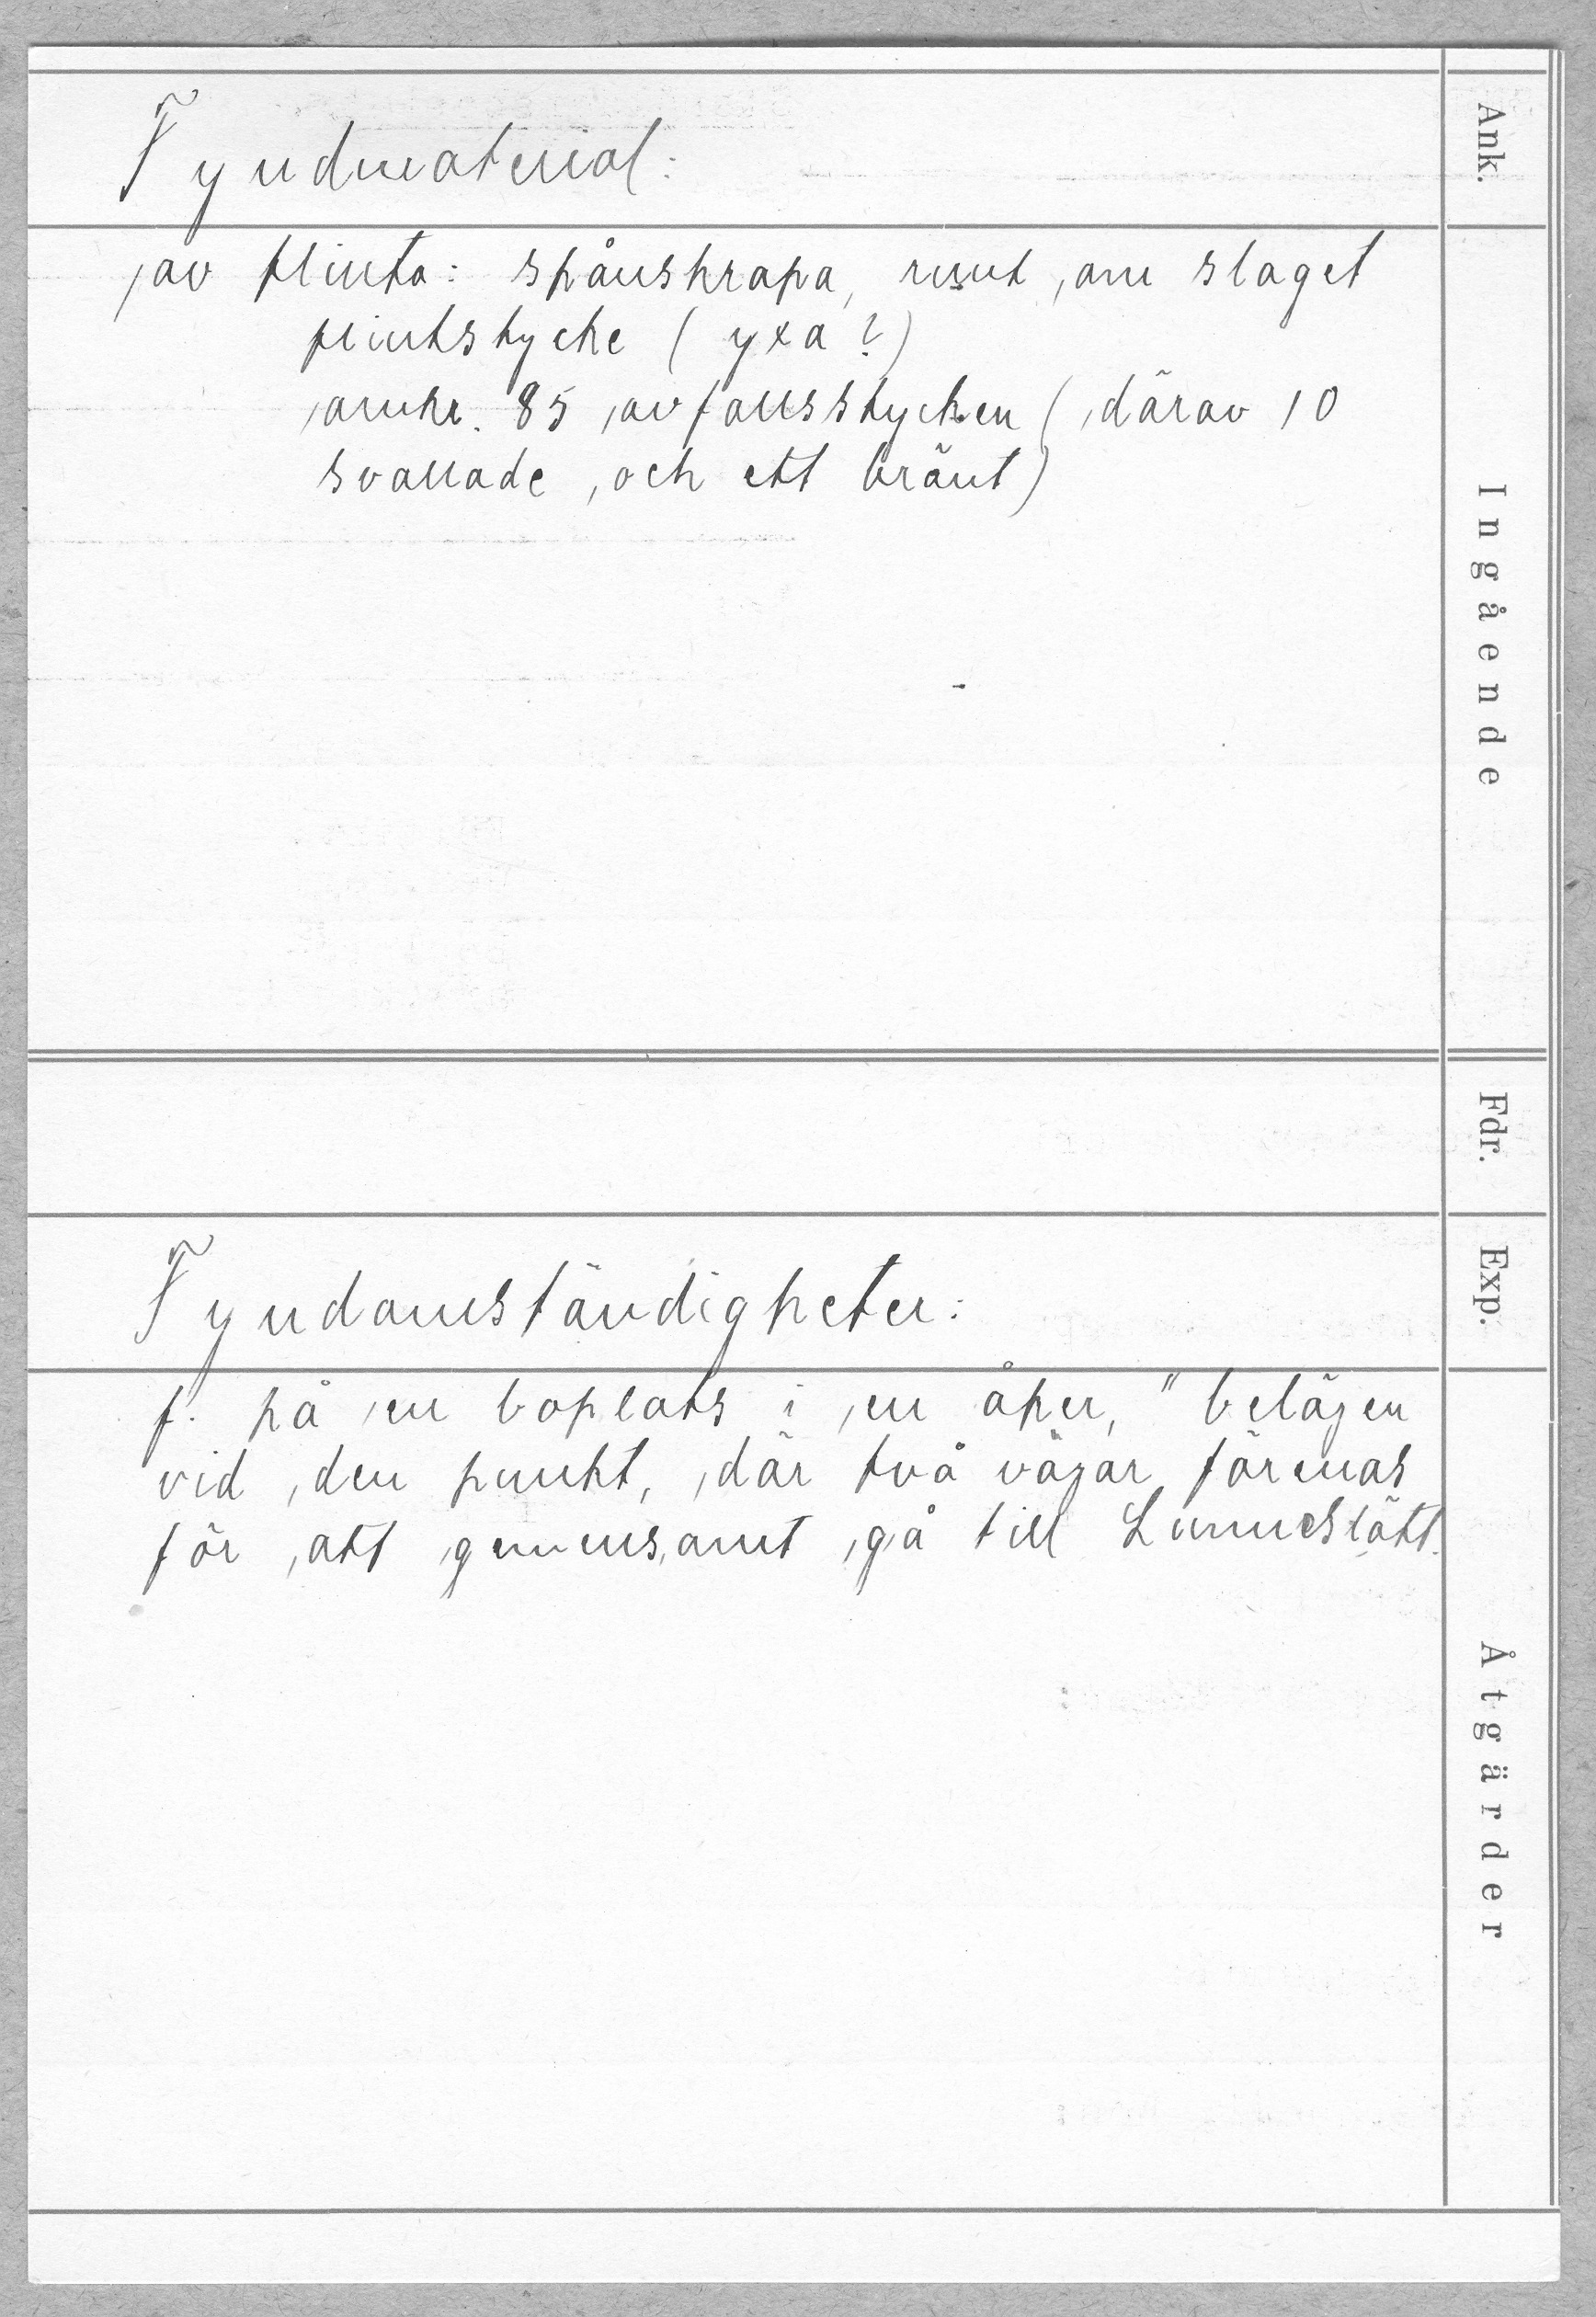 Ank.
Fyndmaterial:
av flinta: spånskrapa, runt om slaget
flintstycke (yxa?)
omkr. 85 avfallsstycken (därav 10
svallade och ett bränt)
Ingående
Fdr.
Exp.
Fyndomständigheter:
f. på en boplats i en åker, "belägen
vid den punkt, där två vägar förenas
för att gemensamt gå till Lunneslätt.
Åtgärder